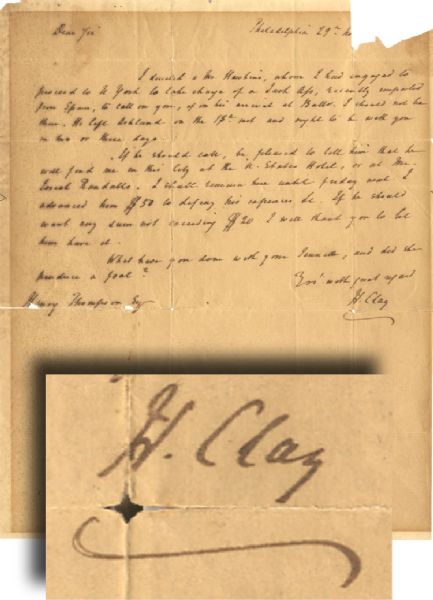 Dear Sir
Philadelphia 29th
I directed a Mr Hawkins, whom I had engaged to
proceed to N York to take charge of a Jack Ass, recently imported
from Spain, to call on you, if on his arrival at Balto. I should not be
there. He left Ashland on the 18th inst and ought to be with you
in two or three days.
If he should call, be pleased to tell him that he
will find me in this City at the U. States Hotel, or at Mr.
Josiah Randalls. I shall remain here until friday next. I
advanced him $50 to defray his expences &c. If he should
want any sum not exceeding $20 I will thank you to let
him have it.
What have you done with your Jennett, and did she
produce a foal?
Yrs' with great regard
Henry Thompson Esq
H. Clay
H. Clay